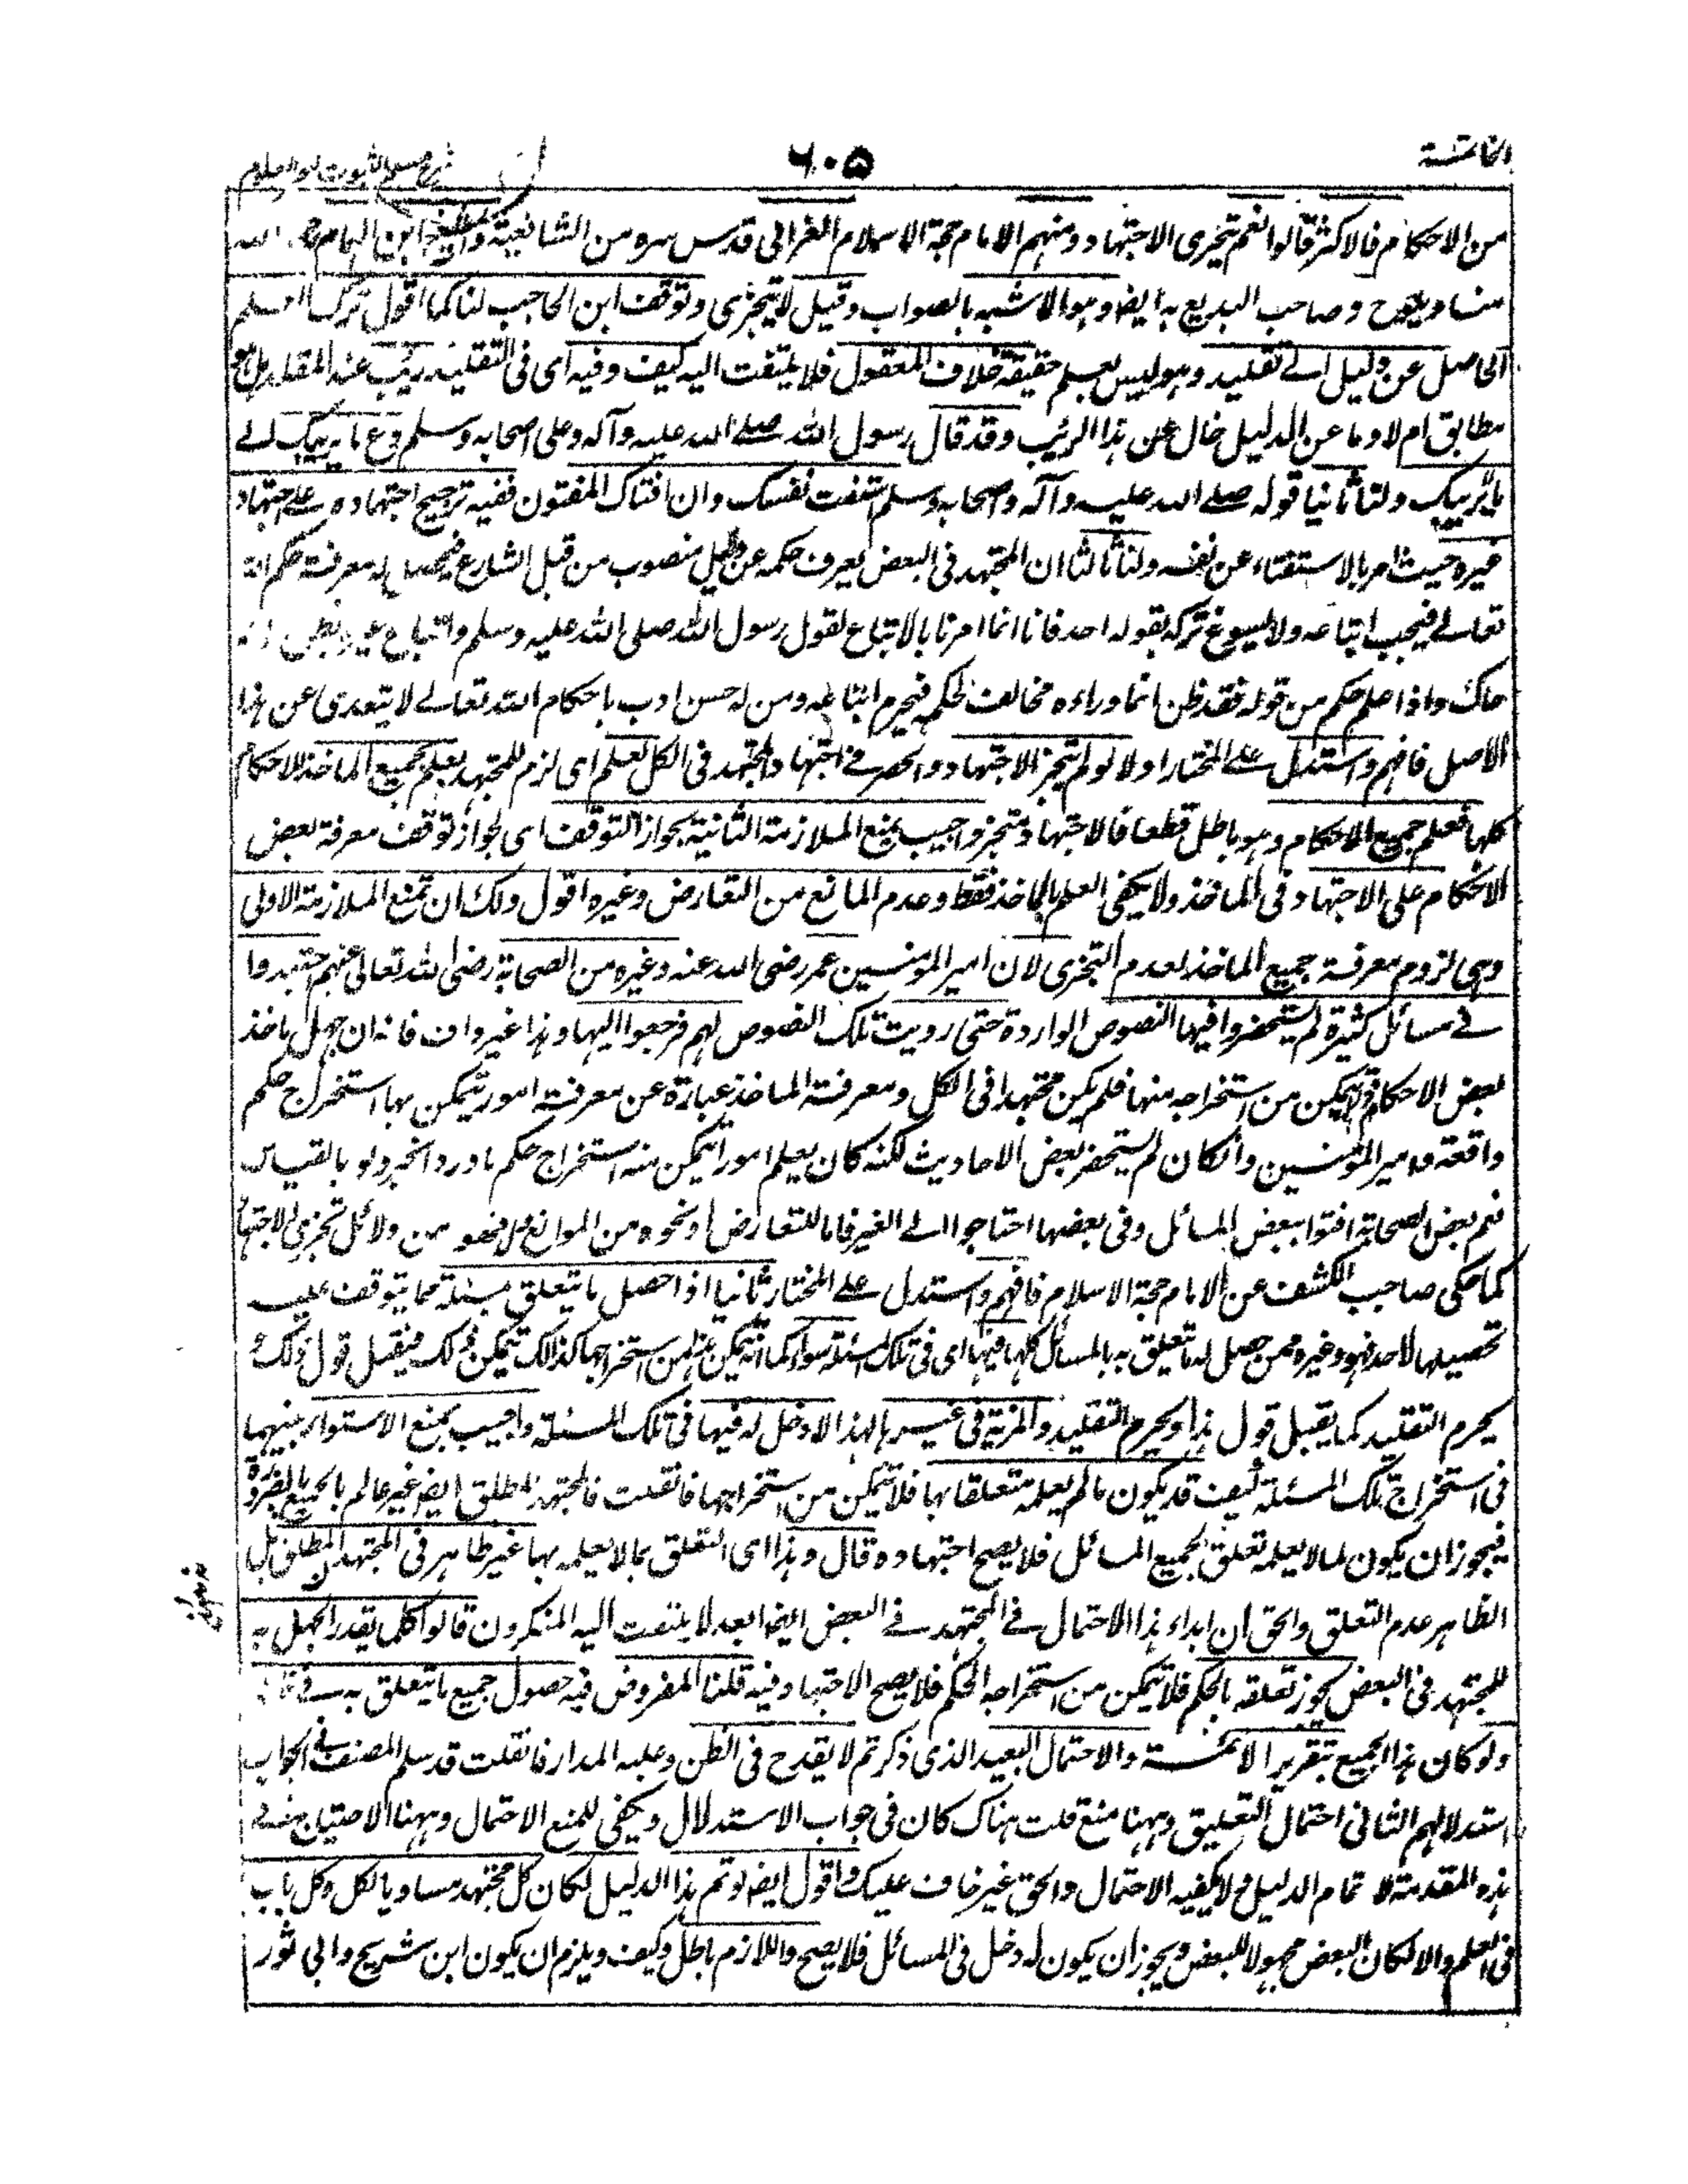 الخاتمة
٦٠٥
شرح مسلم الثبوت لبحر العلوم
من الاحكام فالاكثر قالوا نعم يتجزى الاجتهاد ومنهم الامام حجة الاسلام الغزالي قدس سره من الشافعية والشيخ ابن الهمام رحمه الله
منا ويلوح وصاحب البديع به ايضا وهو الاشبه بالصواب وقيل لا يتجزى وتوقف ابن الحاجب لنا كما اقول ترك العلم
الحاصل عن دليل الے تقليد وهو ليس بعلم حقيقة خلاف المعقول فلا يلتفت اليه كيف وفيه اى فى التقليد ريب عند المقلد هل هو
مطابق ام لا وما عن الدليل خال عن هذا الريب وقد قال رسول الله صلے الله عليه وآله وعلى اصحابه وسلم دع ما يريبك الے
ما لا يريبك ولنا ثانيا قوله صلے الله عليه وآله واصحابه وسلم استفت نفسك وان افتاك المفتون ففيه ترجيح اجتهاده علے اجتهاد
غيره حيث امر بالاستفتاء عن نفسه ولنا ثالثا ان المجتهد فى البعض يعرف حكمه عن دليل منصوب من قبل الشارع فيحصل له معرفة حكم الله
تعالے فيجب اتباعه ولا يسوغ تركه بقوله احد فانا انما امرنا بالاتباع لقول رسول الله صلى الله عليه وسلم واتباع غيره بظن انه
حاك واذا علم حكم من قوله فقد ظن ان ما وراءه مخالف لحكمه فيحرم اتباعه ومن له حسن ادب باحكام الله تعالے لا يتعدى عن هذا
الاصل فافهم واستدل علے المختار اولا لو لم يتجز الاجتهاد وانحصر فے اجتهاد المجتهد فى الكل لعلم اى لزم للمجتهد يعلم جميع الماخذ لاحكام
كلها فعلم جميع الاحكام وهو باطل قطعا فالاجتهاد متجز واجيب بمنع الملازمة الثانية بجواز التوقف اى لجواز توقف معرفة بعض
الاحكام على الاجتهاد فى الماخذ ولا يكفى العلم بالماخذ فقط وعدم المانع من التعارض وغيره اقول ولك ان تمنع الملازمة الاولى
وهى لزوم معرفة جميع الماخذ لعدم التجزى لان امير المومنين عمر رضى الله عنه وغيره من الصحابة رضى الله تعالى عنهم اجتهدوا
فے مسائل كثيرة لم يستحضروا فيها النصوص الواردة حتى رويت تلك النصوص لهم فرجعوا اليها وهذا غير واف فانه ان جهل ماخذ
بعض الاحكام لم يتمكن من استخراجه منها فلم يكن مجتهدا فى الكل ومعرفة الماخذ عبارة عن معرفة امور يتمكن بها استخراج حكم
واقعة وامير المؤمنين وان كان لم يستحضر بعض الاحاديث لكنه كان يعلم امورا يتمكن منه استخراج حكم ما ورد الخبر ولو بالقياس
نعم بعض الصحابة افتوا ببعض المسائل وفى بعضها احتاجوا الے الغير فاما للتعارض او نحوه من الموانع فهو من دلائل تجزى الاجتهاد
كما حكى صاحب الكشف عن الامام حجة الاسلام فافهم واستدل علے المختار ثانيا اذا حصل ما يتعلق بمسئلة مما يتوقف عليه
تحصيلها لاحد فهو وغيره ممن حصل له ما يتعلق به بالمسائل كلها فيها اى فى تلك المسئلة سواء كما انه يتمكن من استخراجها كذلك يتمكن ذلك فيقبل قول ذلك و
يحرم التقليد كما يقبل قول هذا ويحرم التقليد والمزية فى غيرها لهذا لا دخل له فيها فى تلك المسئلة واجيب بمنع الاستواء بينهما
فى استخراج تلك المسئلة كيف قد يكون ما لم يعلمه متعلقا بها فلا يتمكن من استخراجها فان قلت فالمجتهد المطلق ايضا غير عالم بالجميع بالضرورة
فيجوز ان يكون لما لا يعلمه تعلق بجميع المسائل فلا يصح اجتهاده قال وهذا اى التعلق بما لا يعلمه بها غير ظاهر فى المجتهد المطلق بل
الظاهر عدم التعلق والحق ان ابداء هذا الاحتمال فے المجتهد فے البعض ايضا ابعد لا يلتفت اليه المنكرون قالوا كل ما يقدر الجهل به
للمجتهد فى البعض يجوز تعلقه بالحكم فلا يتمكن من استخراجه الحكم فلا يصح الاجتهاد فيه قلنا المفروض فيه حصول جميع ما يتعلق به فے ظنه
ولو كان هذا الجميع بتقرير الائمة والاحتمال البعيد الذى ذكرتم لا يقدح فى الظن وعليه المدار فان قلت قد سلم المصنف فے الجواب
استدلالهم الثانى احتمال التعليق وههنا منع قلت هناك كان فى جواب الاستدلال ويكفى للمنع الاحتمال وههنا الاحتياج فے
هذه المقدمة لا تمام الدليل ولا يكفيه الاحتمال والحق غير خاف عليك واقول ايضا لو تم هذا الدليل لكان كل مجتهد مساويا لكل وكل باب
فى العلم والا لكان البعض مجهولا للبعض ويجوز ان يكون له دخل فى المسائل فلا يصح واللازم باطل وكيف ويلزم ان يكون ابن شريح وابى ثور